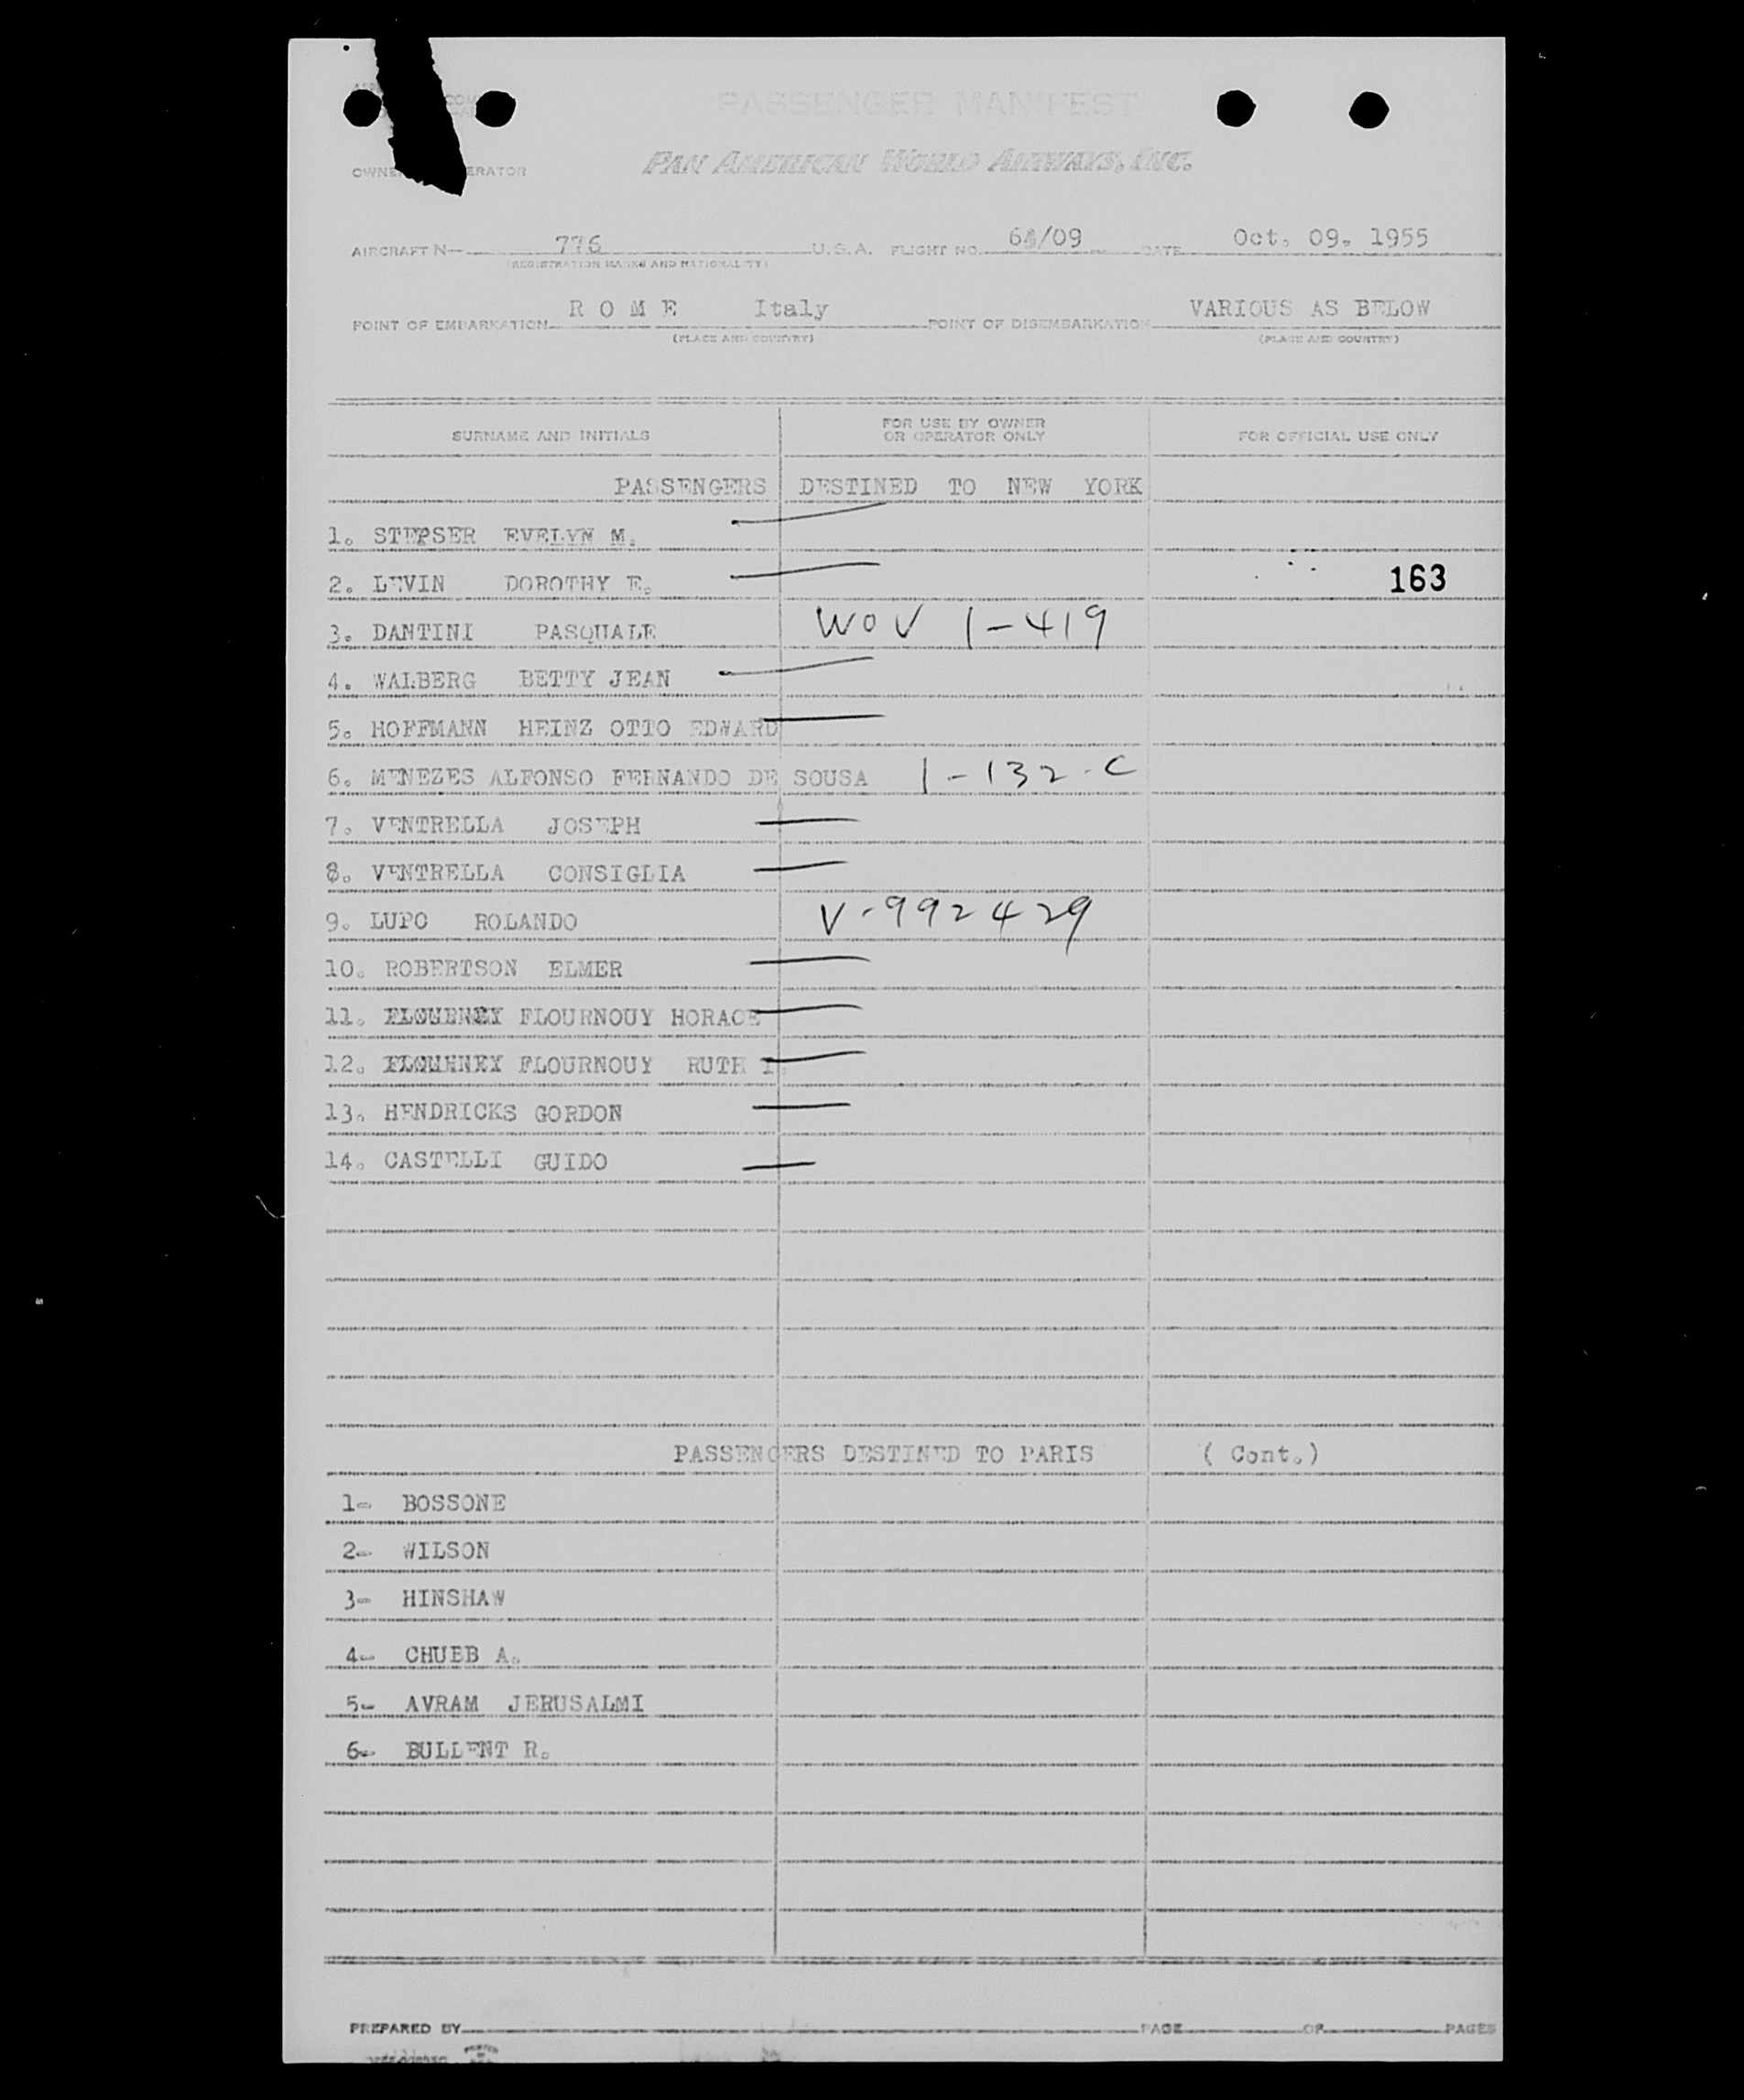 PASSENGER MANIFEST
PAN AMERICAN WORLD AIRWAYS, INC.
AIRCRAFT N— 776 U.S.A. FLIGHT NO. /09 DATE Oct. 09. 1955
(REGISTRATION MARKS AND NATIONALITY)
POINT OF EMBARKATION R O M E Italy POINT OF DISEMBARKATION VARIOUS AS BELOW
(PLACE AND COUNTRY) (PLACE AND COUNTRY)
SURNAME AND INITIALS FOR USE BY OWNER OR OPERATOR ONLY FOR OFFICIAL USE ONLY
PASSENGERS DESTINED TO NEW YORK
1. EVELYN M.
2. LEVIN DOROTHY E. 163
3. DANTINI PASQUALE WOV 1-419
4. WALBERG BETTY JEAN
5. HOFFMANN HEINZ OTTO EDWARD
6. MENEZES ALFONSO FERNANDO DE SOUSA 1-132-C
7. VENTRELLA JOSEPH
8. VENTRELLA CONSIGLIA
9. LUPO ROLANDO V-992429
10. ROBERTSON ELMER
11. FLOURNOUY HORACE
12. FLOURNOUY RUTH I.
13. HENDRICKS GORDON
14. CASTELLI GUIDO
PASSENGERS DESTINED TO PARIS ( Cont.)
1- BOSSONE
2- WILSON
3- HINSHAW
4- CHUEB A.
5- AVRAM JERUSALMI
6- BULLENT R.
PREPARED BY PAGE OF PAGES